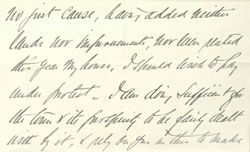 no just cause, having added neither
lands nor improvements, nor even rented
this year my house, I should wish to pay
under protest - I am doing sufficient for
the town & its prosperity to be fairly dealt
with by it, & rely on you in time to make